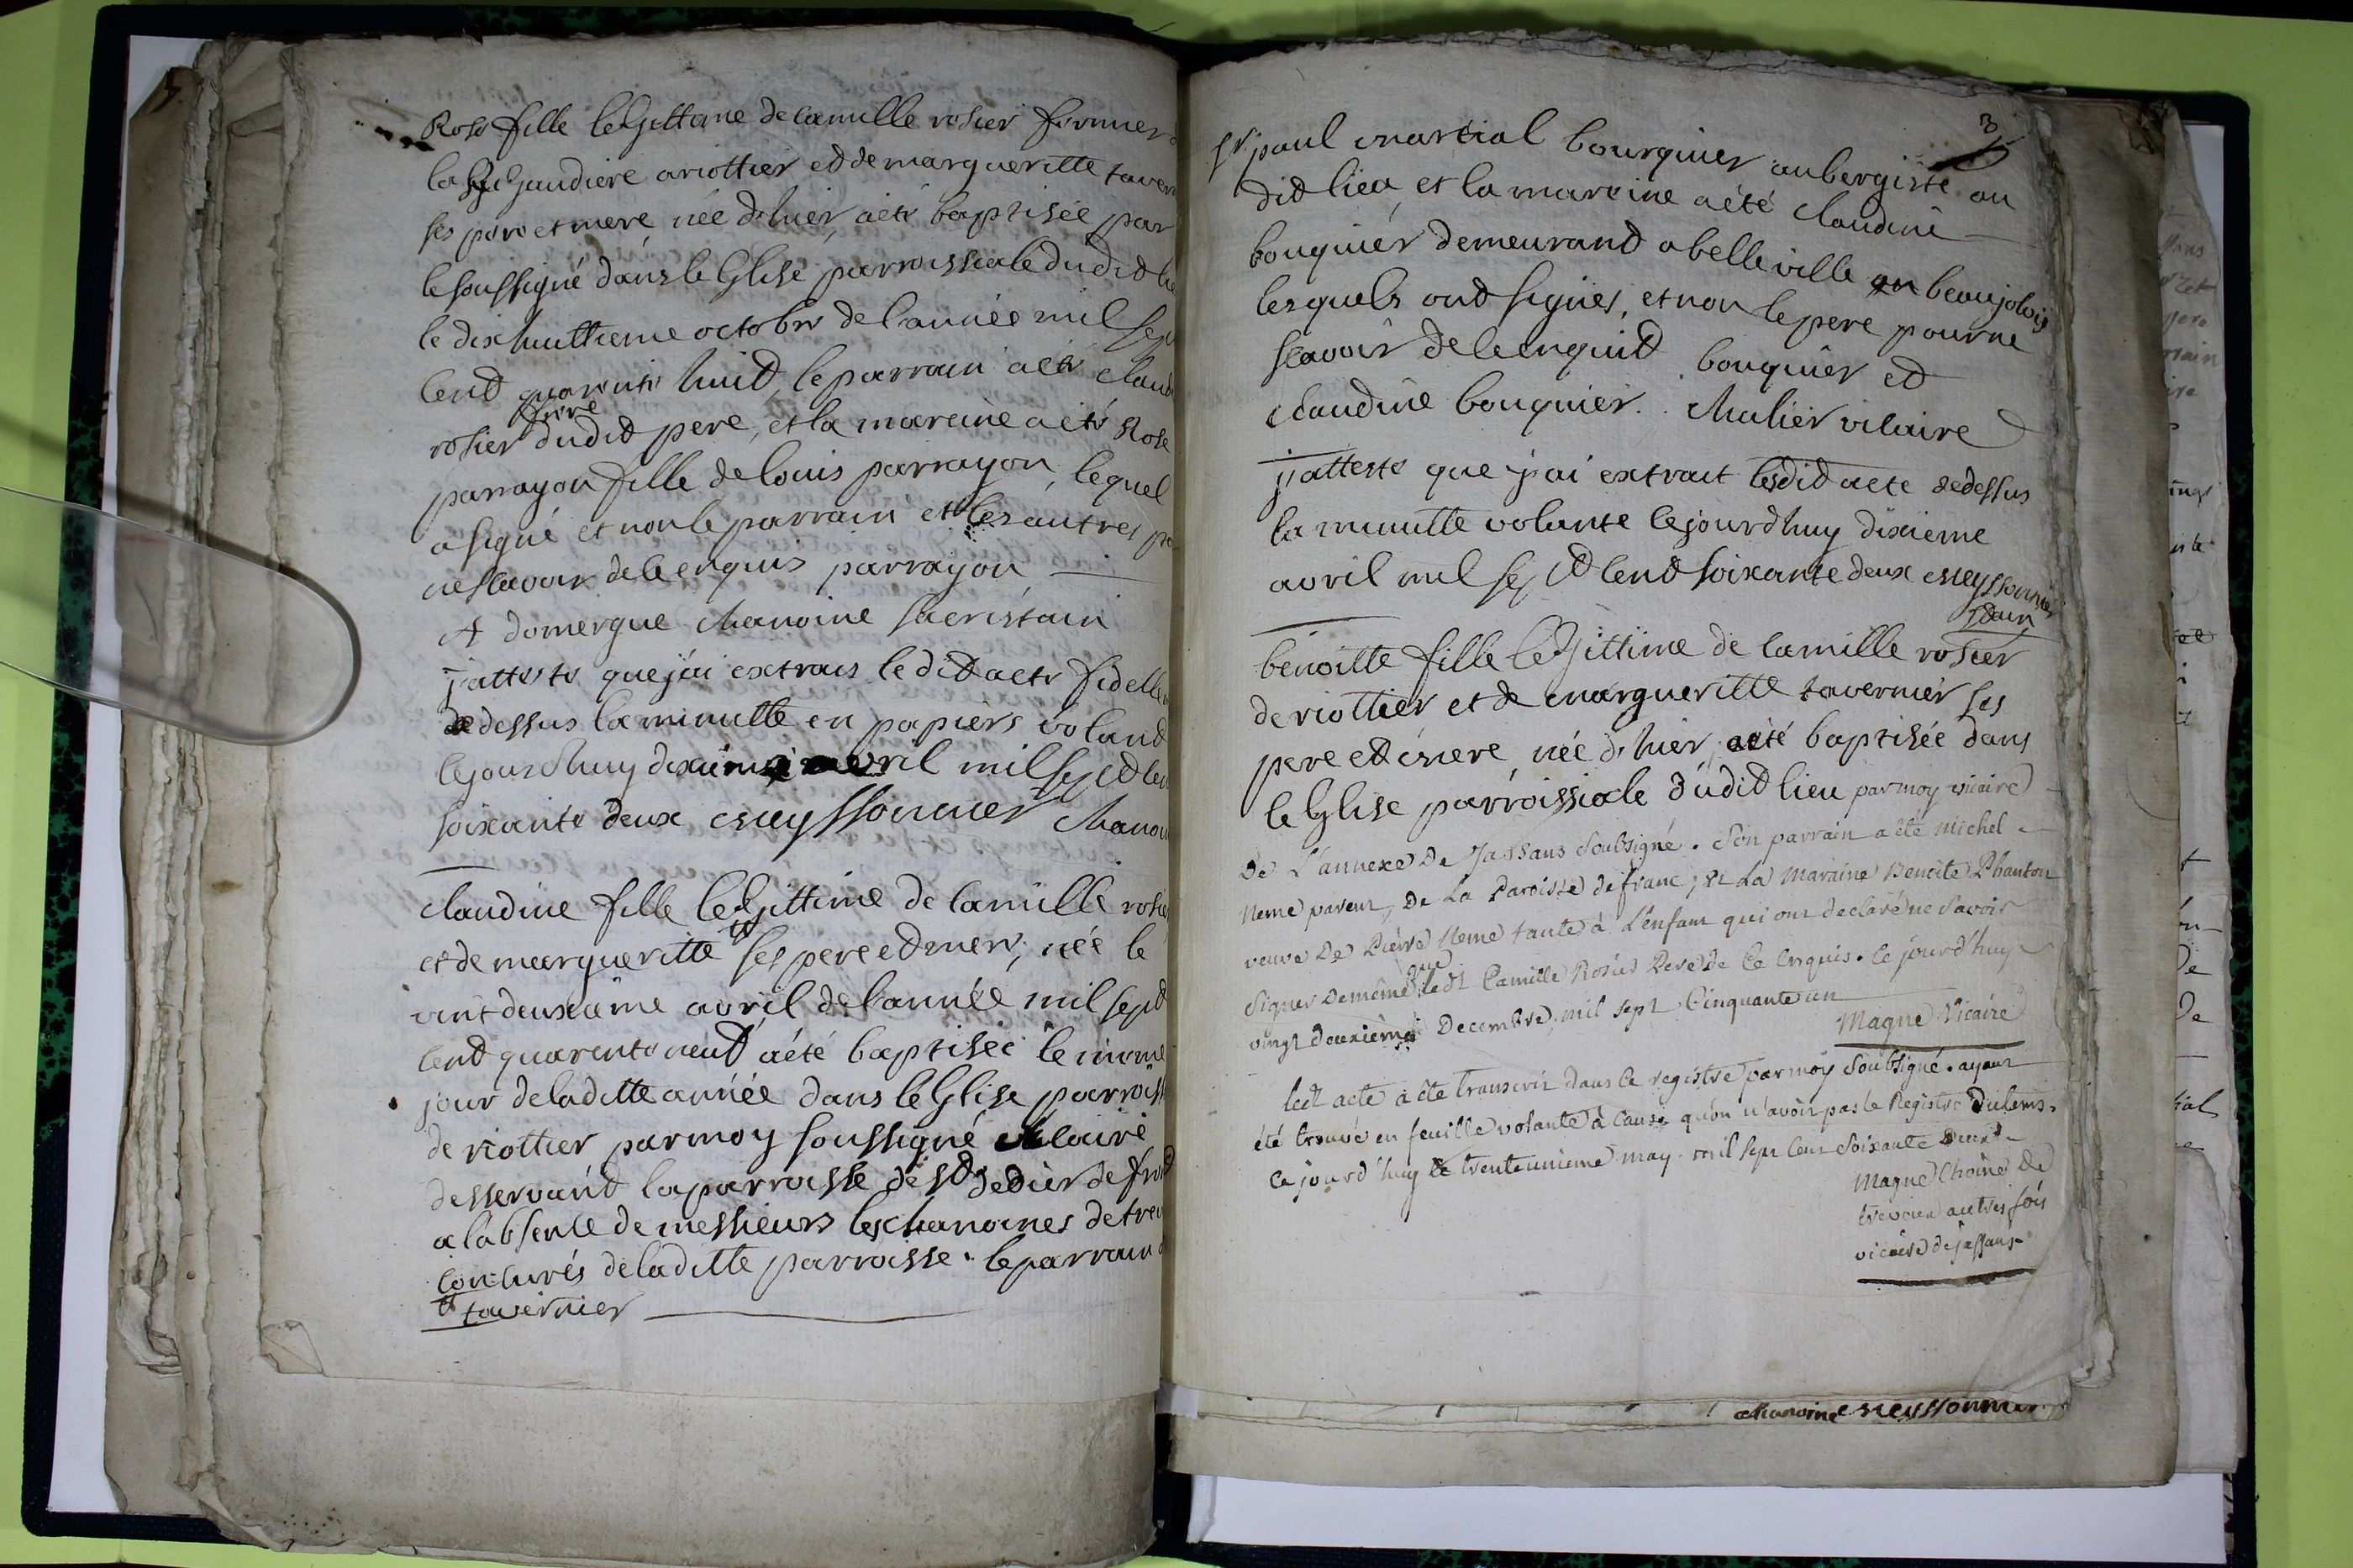 Rose fille legittime de camille rosier fermier
la gaudiere ariottier et de margueritte taver
ses pere et mere née dhier, a été baptisée par
le soussigné dans leglise parroissiale dudit lie
le dixhuittieme octobre de l'année mil sep
cent quarente huit, le parrain a été claud
frere
rosier dudit pere, et la mareine a été Rose
parrayon fille de louis parrayon, lequel
a signé et non le parrain et les autres p
ne scavoir de ce enquis parrayon
A domergue chanoine sacristain
j'atteste que j'ai extrais ledit acte fidellem
dedessus la minutte en papiers voland
cejourdhuy dixieme avril mil sept cen
soixante deux meyssonnier chanoi
claudine fille legittime de camille rosier
et de margueritte ses pere et mere, née le
vint deuxieme avril de l'année mil sept
cent quarente neuf a été baptisée le meme
jour de laditte année dans leglise parroiss
de riottier par moy soussigné vicaire
desservant la parroisse de st dedier de fro
a labsence de messieurs les chanoines de trev
concurés de laditte parroisse. le parrain a
tavernier
3
sr paul martial bourquier aubergiste au
dit lieu, et la mareine a été claudine
bouquier demeurand a belleville en beaujolois
lesquels ond signés, et non le pere pour ne
scavoir de ce enquit bouquier et
claudine bouquier. Chulier vicaire
j'atteste que j'ai extrait lesdit acte dedessus
la minutte volante cejourdhuy dixieme
avril mil sept cent soixante deux meyssonnier
benoitte fille legittime de camille rosier
de riottier et de margueritte tavernier ses
pere et mere, née dhier, a été baptisée dans
leglise parroissiale dudit lieu par moy vicaire
de L'annexe de Jassans soubsigné. son parrain a été michel
neme parent, de la Paroisse de franc; et La Maraine Benoite Phanton
veuve de Pierre Neme tante à L'enfant qui ont declaré ne savoir
que
signer de même ledt Camille Rosier Pere de ce Enquis. ce jourd'huy
vingt deuxieme Decembre mil sept Cinquante un
Magne Vicaire
ledt acte a été transcrit dans ce registre par moy soubsigné. ayant
été trouvé en feuille volante à cause qu'on n'avoit pas le Registre du tems.
ce jourd'huy le trente unieme may mil sept cent soixante Deux
Magne Choine de
trevoux autres fois
vicaire de jassans
chanoine meyssonnier